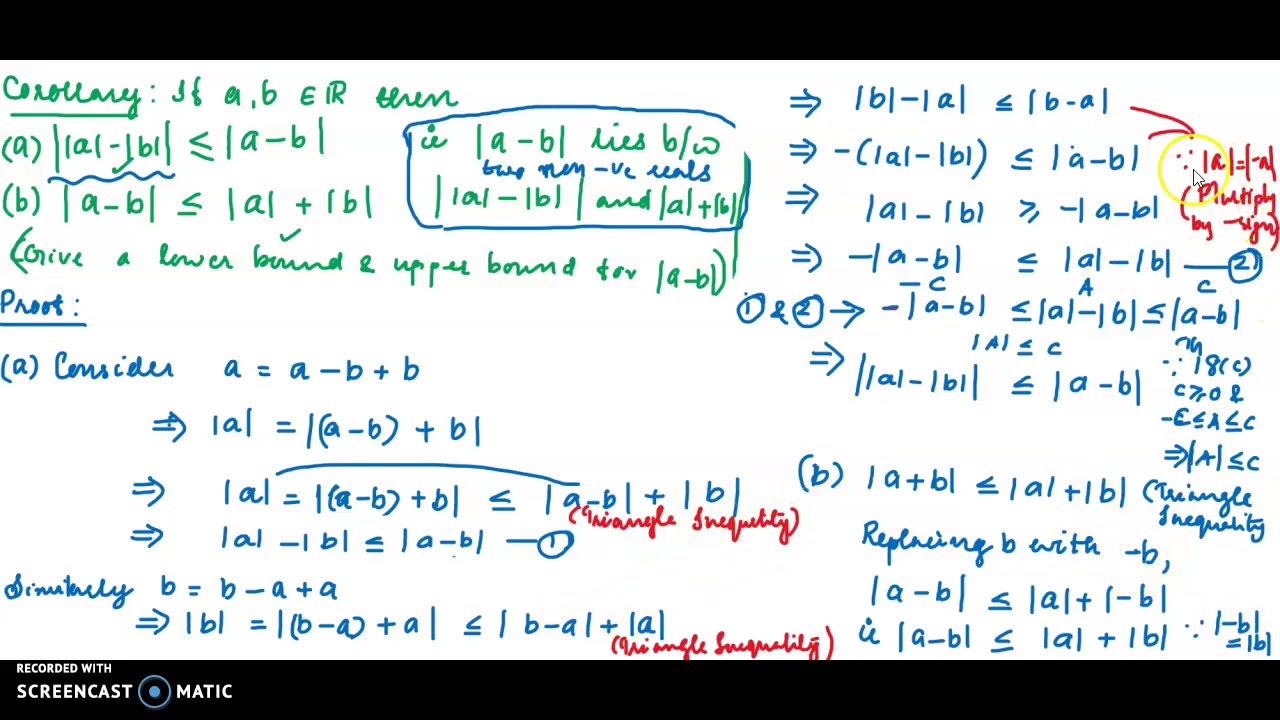 Corollary: If a, b ∈ ℝ then
(a) ||a|-|b|| ≤ |a-b|
(b) |a-b| ≤ |a| + |b|
(Give a lower bound & upper bound for |a-b|)
ie |a-b| lies b/w
two non -ve reals
||a|-|b|| and |a|+|b|
Proof:
(a) Consider a = a-b+b
⇒ |a| = |(a-b) + b|
⇒ |a| = |(a-b)+b| ≤ |a-b| + |b|
(Triangle Inequality)
⇒ |a| -|b| ≤ |a-b| — ①
Similarly b = b-a+a
⇒ |b| = |(b-a)+a| ≤ |b-a|+|a|
(Triangle Inequality)
⇒ |b|-|a| ≤ |b-a|
⇒ -(|a|-|b|) ≤ |a-b|
∵ |a|=|-a|
(Multiply
by -sign)
⇒ |a|-|b| ≥ -|a-b|
⇒ -|a-b| ≤ |a|-|b| — ②
-C A C
① & ② → -|a-b| ≤ |a|-|b| ≤ |a-b|
|A| ≤ C
⇒ ||a|-|b|| ≤ |a-b|
C≥0 &
-C≤A≤C
⇒|A|≤C
(b) |a+b| ≤ |a|+|b| (Triangle
Inequality
Replacing b with -b,
|a-b| ≤ |a|+|-b|
ie |a-b| ≤ |a|+|b| ∵ |-b|
=|b|
RECORDED WITH
SCREENCAST MATIC